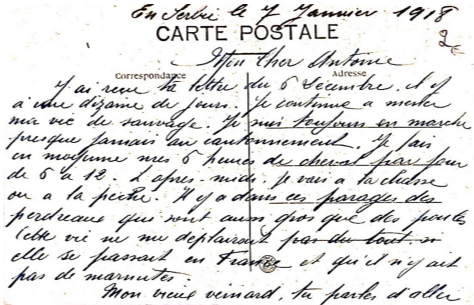 En Serbie le 7 Janvier 1918
CARTE POSTALE
Mon Cher Antoine
Correspondance
Adresse
J'ai reçu ta lettre du 6 Décembre. il y
a une dizaine de jours. Je continue a mener
ma vie de sauvage. Je suis toujours en marche
presque jamais au cantonnement. Je fais
en moyenne mes 6 heures de cheval par jour
de 6 a 12. L'apres-midi je vais a la chasse
ou a la pêche. Il y a dans ces parages des
perdreaux que sont aussi gros que des poules
Cette vie ne me déplairait pas du tout si
elle se passait en France et qu'il n'y ait
pas de marmites.
Mon vieux veinard, tu parles d'aller